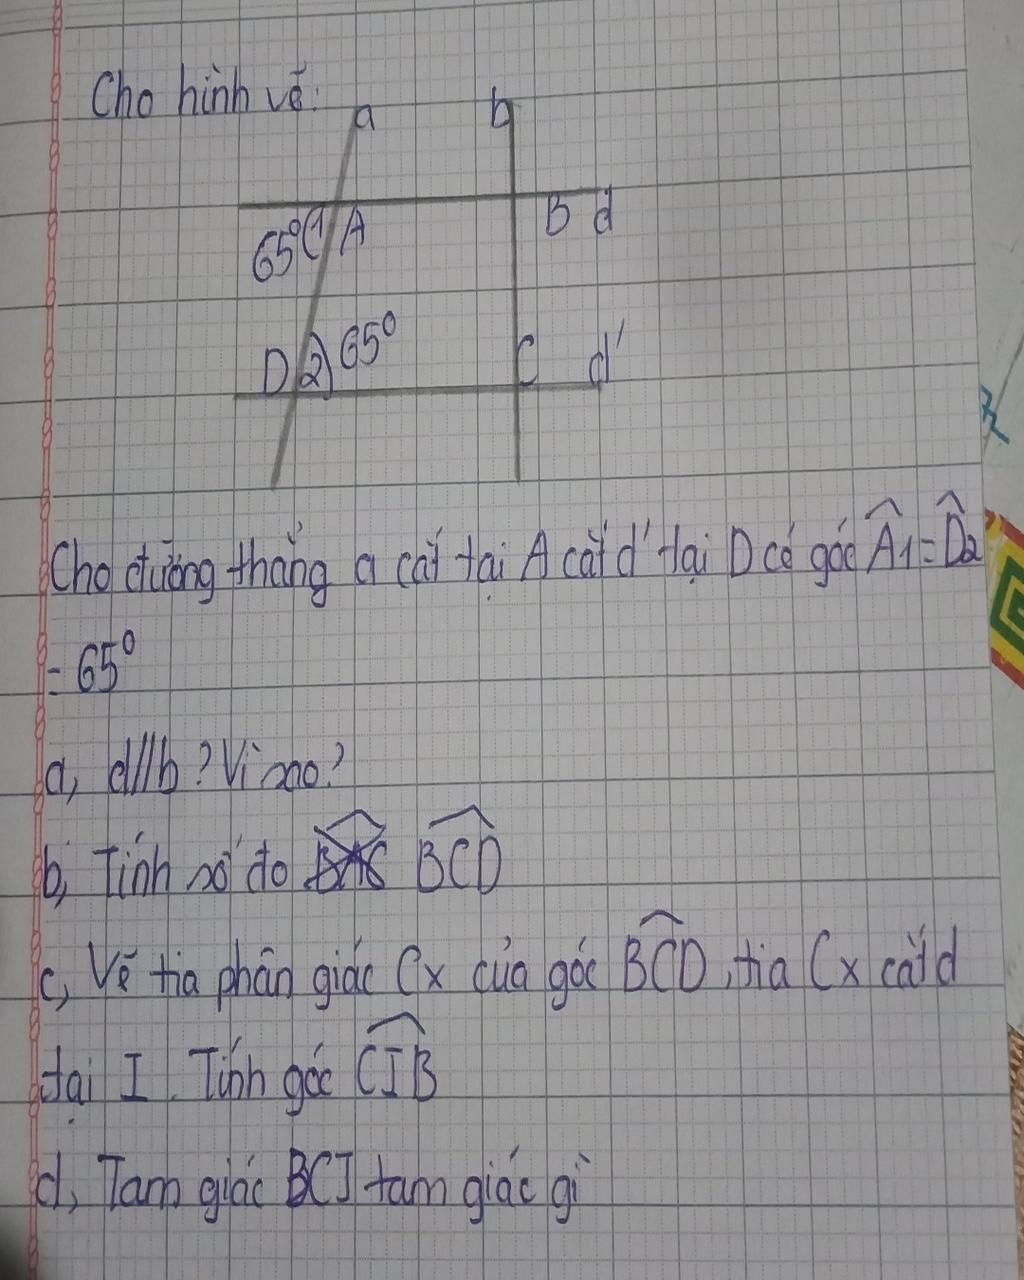 Cho hình vẽ:
a b
65° 1 A B d
D 2 65° C d'
Cho đường thẳng a cắt tại A cắt d' tại D có góc Â1 = D̂2
= 65°
a, d//b? Vì sao?
b, Tính số đo BCD
c, Vẽ tia phân giác Cx của góc BCD, tia Cx cắt d
tại I. Tính góc CIB
d, Tam giác BCI tam giác gì